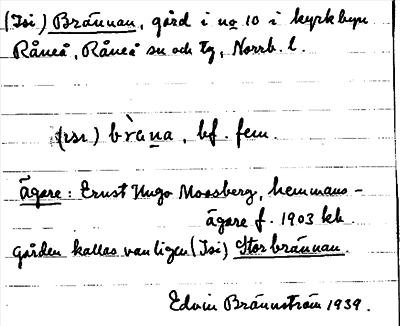 (Isi) Brännan, gård i no 10 i kyrkbyn
Råneå, Råneå sn och tg, Norrb. l.
(ısı) brὰna, bf. fem.
Ägare: Ernst Hugo Mossberg, hemmans-
ägare f. 1903 kh.
Gården kallas vanligen (Isi) Storbrännan.
Edvin Brännström 1939.